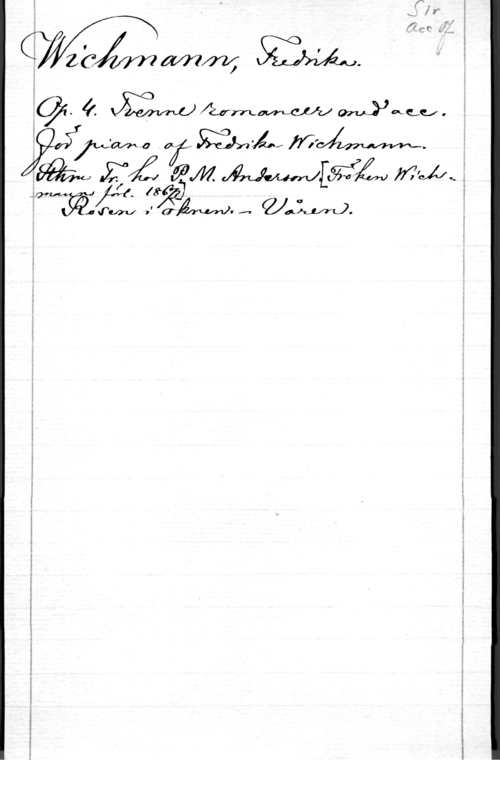 Sir
Acc pf
Wichmann, Fredrika.
Op. 4. Tvenne romancer med acc.
för piano af Fredrika Wichmann.
Sthm Tr. hos P. M. Anderson [Fröken Wich-
manns förl. 1867]
Rosen i öknen. - Våren.